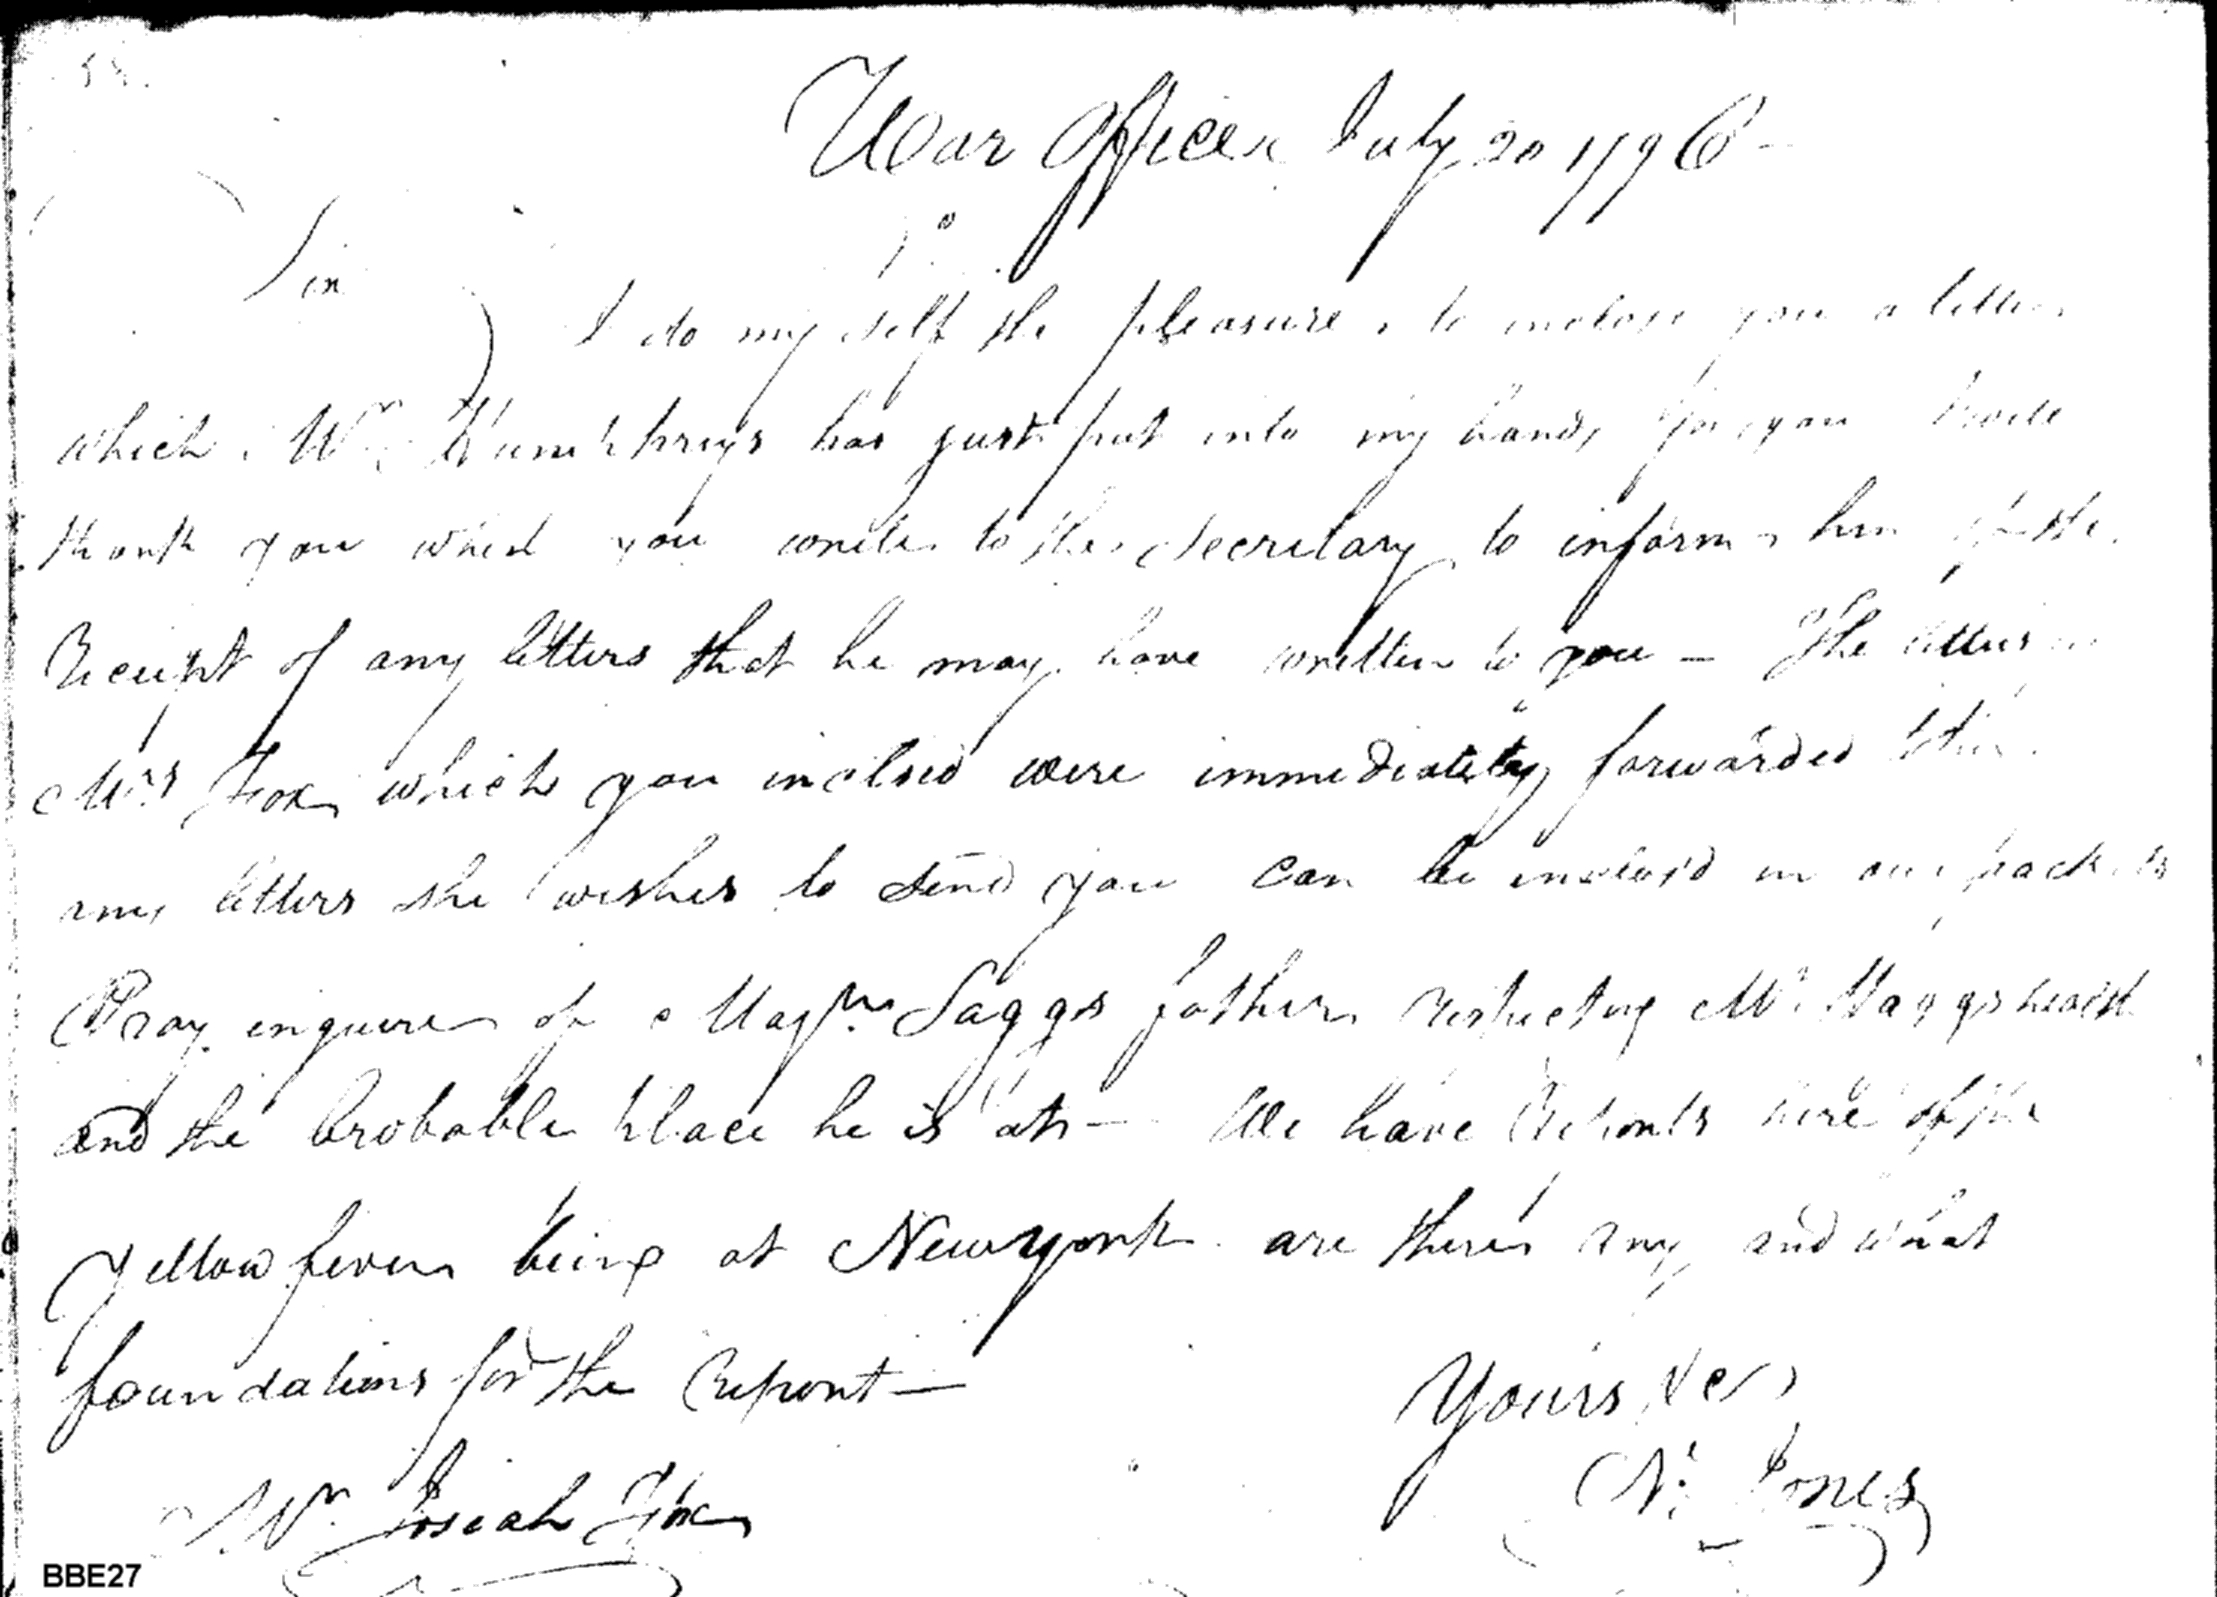 War Office July 20 1796
Sir
I do my self the pleasure to inclose you a letter
which Mr Humphreys has just put into my hands for you I will
thank you when you write to the Secretary to inform him of the
Receipt of any letters that he may have written to you — The letters
Mrs Fox which you inclosed were immediately forwarded
any letters she wishes to send you can be inclos'd in our packets
Pray inquire of Saggs father respecting Mr health
and the Probable place he is at — We have Reports here of the
Yellow fever being at Newyork are there any and what
foundations for the Report —
Yours &c
Jones
Mr Josiah Fox
BBE27